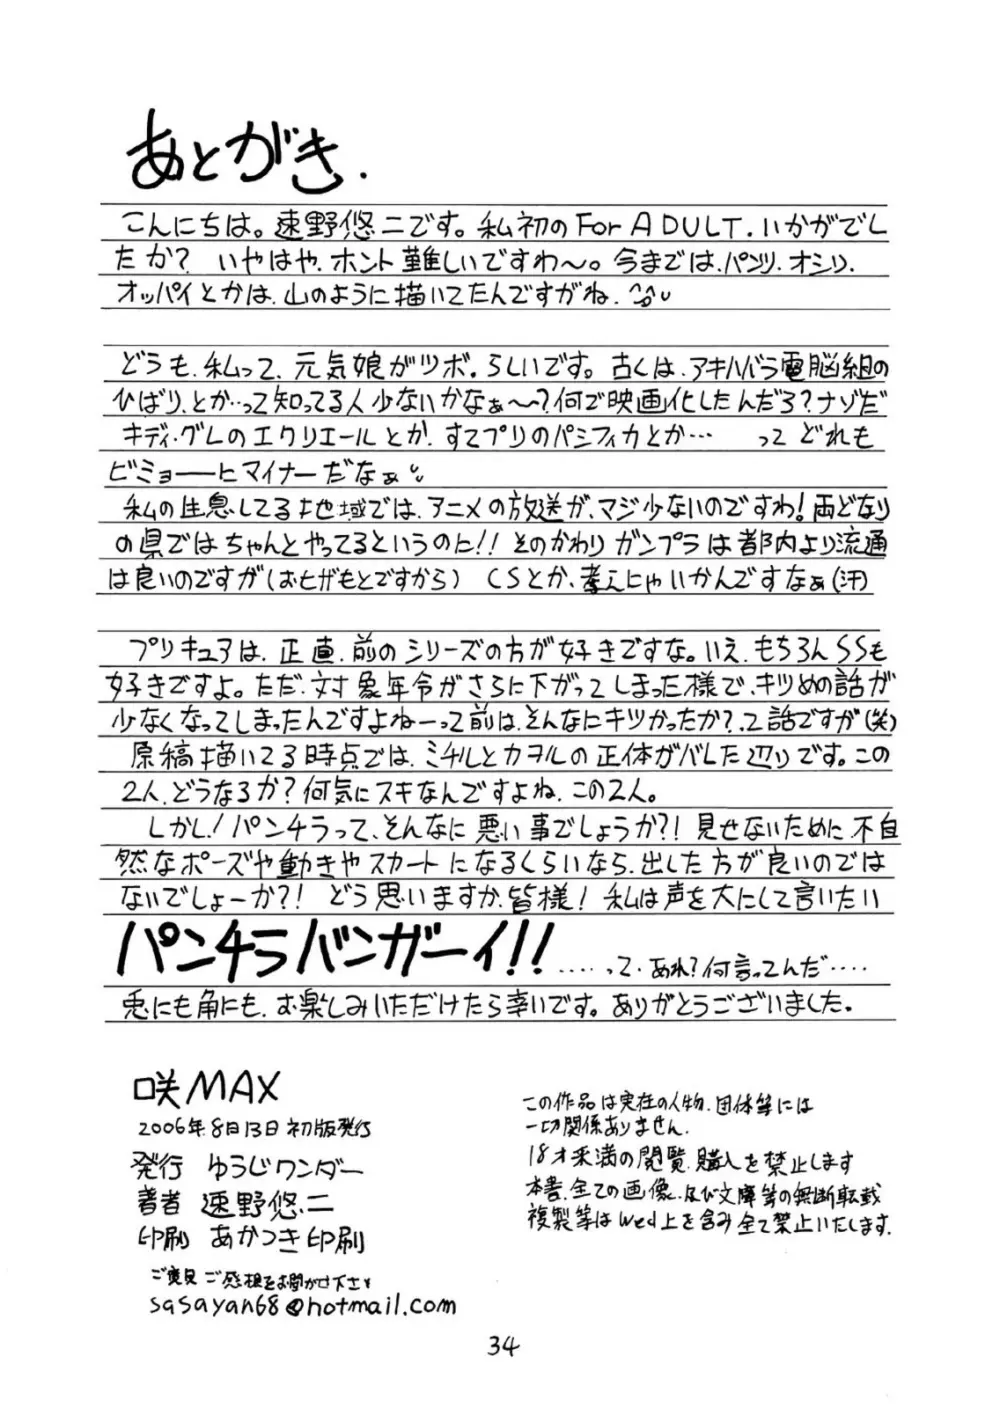 あとがき.
こんにちは。速野悠二です。私初のFor ADULT.いかがでし
たか? いやはや、ホント難しいですわ〜。今までは、パンツ、オシリ、
オッパイとかは、山のように描いてたんですがね、
どうも、私って、元気娘がツボ。らしいです。古くは、アキハバラ電脳組の
ひばり、とか…って知ってる人少ないかなぁ〜〜?何で映画化したんだろ?ナゾだ
キディ・グレのエクリエールとか、すてプリのパシフィカとか… ってどれも
ビミョーーーにマイナーだなぁ
私の生息してる地域では、アニメの放送が、マジ少ないのですわ!両どなり
の県ではちゃんとやってるというのに!! そのかわりガンプラは都内より流通
は良いのですが(おヒザもとですから) CSとか、考えにゃいかんですなぁ(汗)
プリキュアは、正直、前のシリーズの方が好きですな。いえ、もちろんSSも
好きですよ。ただ、対象年令がさらに下がってしまった様で、キツめの話が
少なくなってしまったんですよねーって前は、そんなにキツかったか?、て話ですが(笑)
原稿描いてる時点では、ミチルとカヲルの正体がバレした辺りです。この
2人、どうなるか?何気にスキなんですよね、この2人。
しかし!パンチラって、そんなに悪い事でしょうか?!見せないために、不自
然なポーズや動きやスカートになるくらいなら、出した方が良いのでは
ないでしょーか?! どう思いますか、皆様!私は声を大にして言いたい
パンチラバンガーイ!! ....って、あれ?何言ってんだ....
兎にも角にも、お楽しみいただけたら幸いです。ありがとうございました。
咲MAX
2006年.8月13日初版発行
発行 ゆうじワンダー
著者 速野悠二
印刷 あかつき印刷
ご意見ご感想をお聞かせ下さい
sasayan68@hotmail.com
この作品は実在の人物、団体等には
一切関係ありません.
18才未満の閲覧、購入を禁止します
本書、全ての画像、及び文庫等の無断転載
複製等はWed上を含み全て禁止いたします.
34